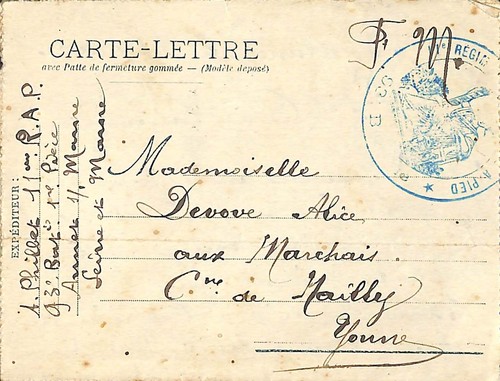 F. M.
CARTE-LETTRE
avec Patte de fermeture gommée — (Modèle déposé)
1er RÉGIM
À PIED
93 B
EXPÉDITEUR :
A. Phillet 1er R.A.P.
93e Batie 1re Pièce
Annet s/ Marne
Seine et Marne
Mademoiselle
Devove Alice
aux Marchais
Cne de Mailly
Yonne